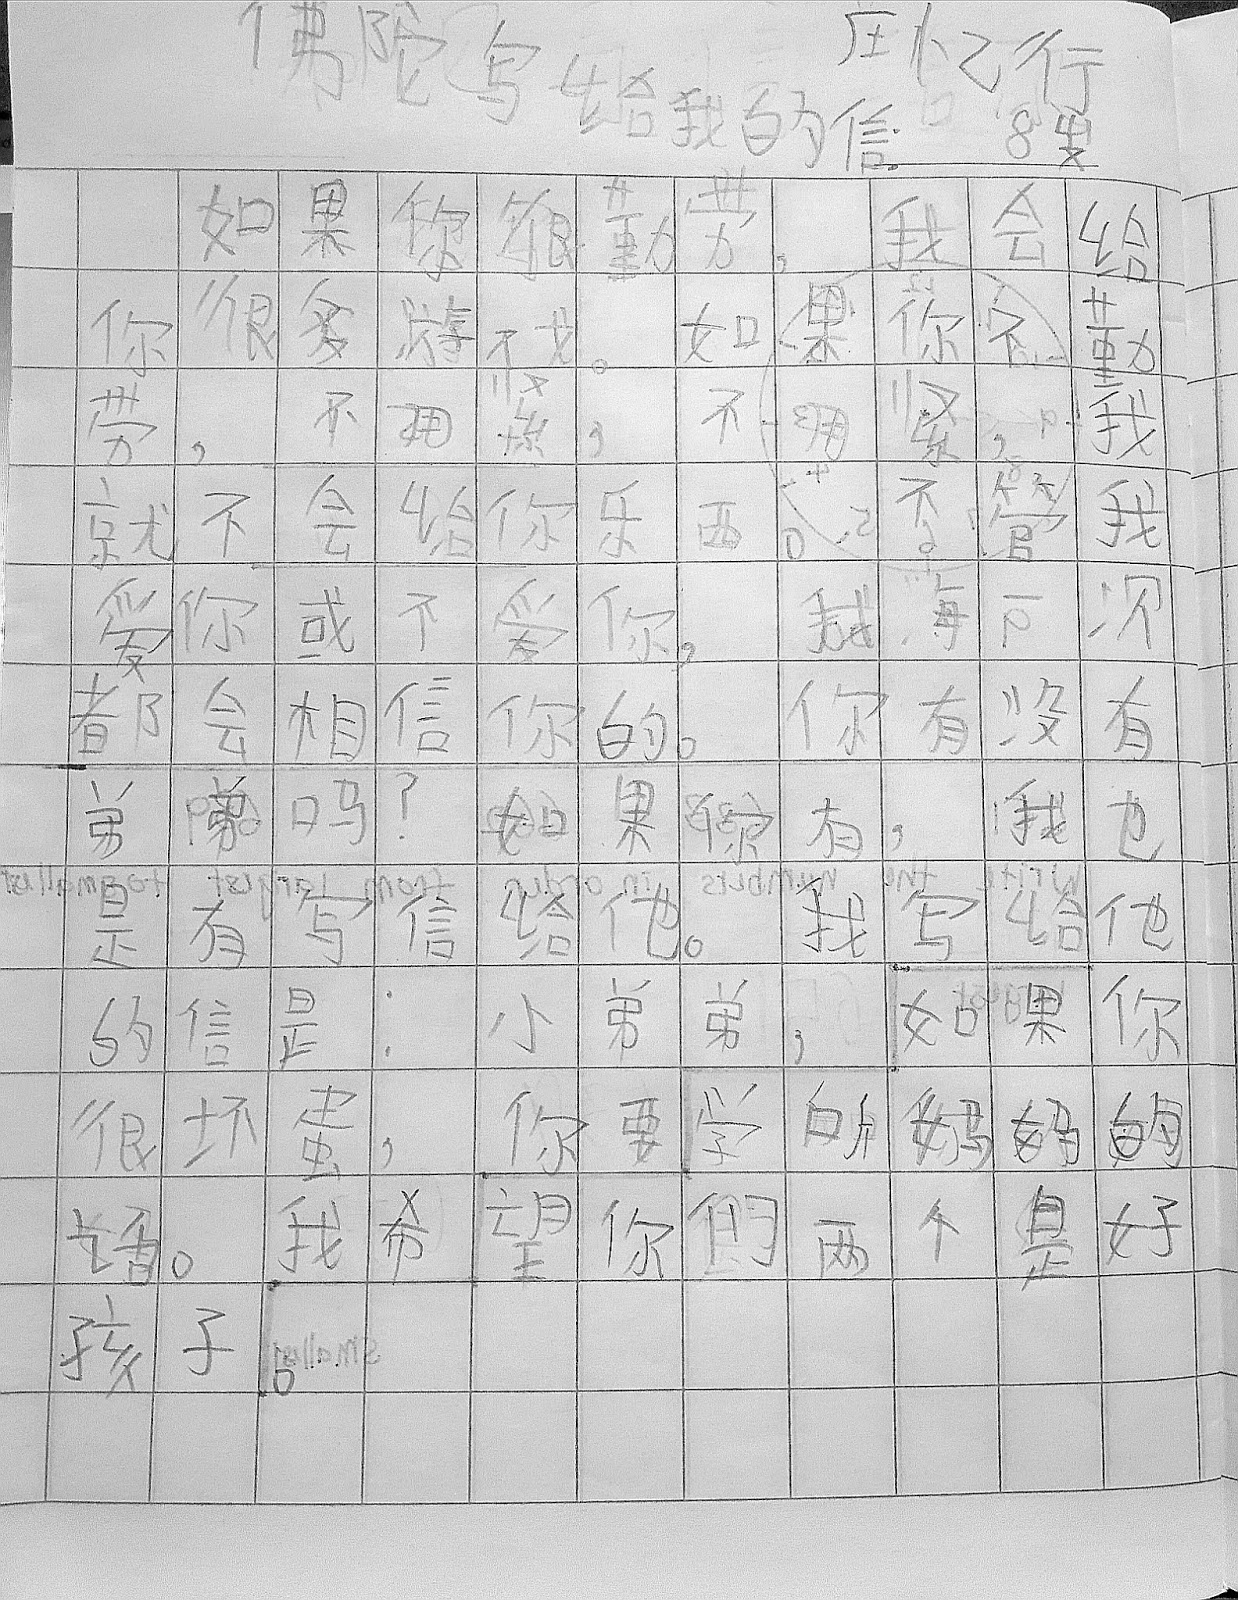 佛陀写给我的信
庄忆行
8岁
如果你很勤劳，我会给
你很多游戏。如果你不勤
劳，不用紧，不用紧，我
就不会给你乐西。不管我
爱你或不爱你，我海下次
都会相信你的。你有没有
弟弟吗？如果你有，我也
是有写信给他。我写给他
的信是：小弟弟，如果你
很坏蛋，你要学的妈妈的
话。我希望你們两个是好
孩子。
write the numbers in order from largest to smallest
smallest